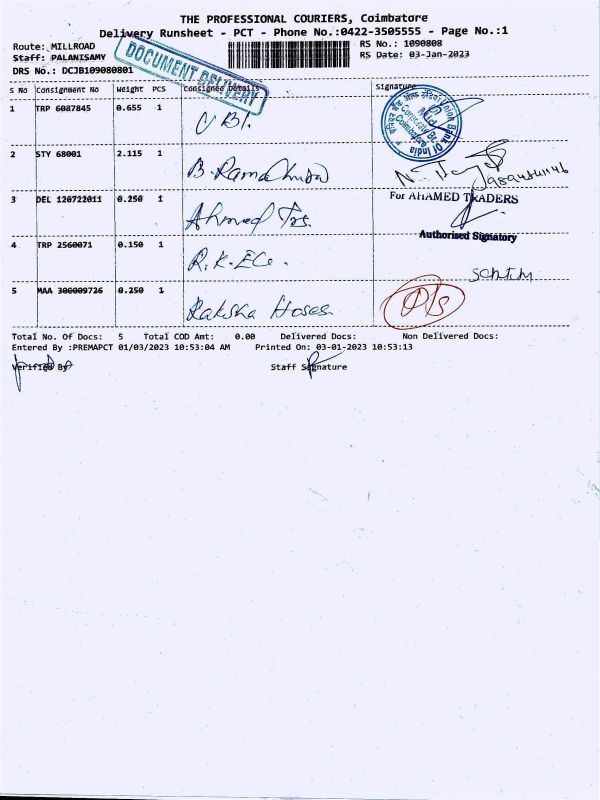 THE PROFESSIONAL COURIERS, Coimbatore
Delivery Runsheet - PCT - Phone No.:0422-3505555 - Page No.:1
Route: MILLROAD
RS No.: 1090808
Staff: PALANISAMY
RS Date: 03-Jan-2023
DRS No.: DCJB109080801
DOCUMENT DELIVERY
S No Consignment No Weight PCS Consignee Details Signature
1 TRP 6087845 0.655 1
UBI.
Union Bank Of India
Coimbatore
2 STY 68001 2.115 1
3 DEL 120722011 0.250 1 Ahmed Trs.
For AHAMED TRADERS
Authorised Signatory
4 TRP 2560071 0.150 1 R.K. Ele.
5 MAA 300009726 0.250 1 Raksha Hoses.
Total No. Of Docs: 5 Total COD Amt: 0.00 Delivered Docs: Non Delivered Docs:
Entered By :PREMAPCT 01/03/2023 10:53:04 AM Printed On: 03-01-2023 10:53:13
Verified By
Staff Signature